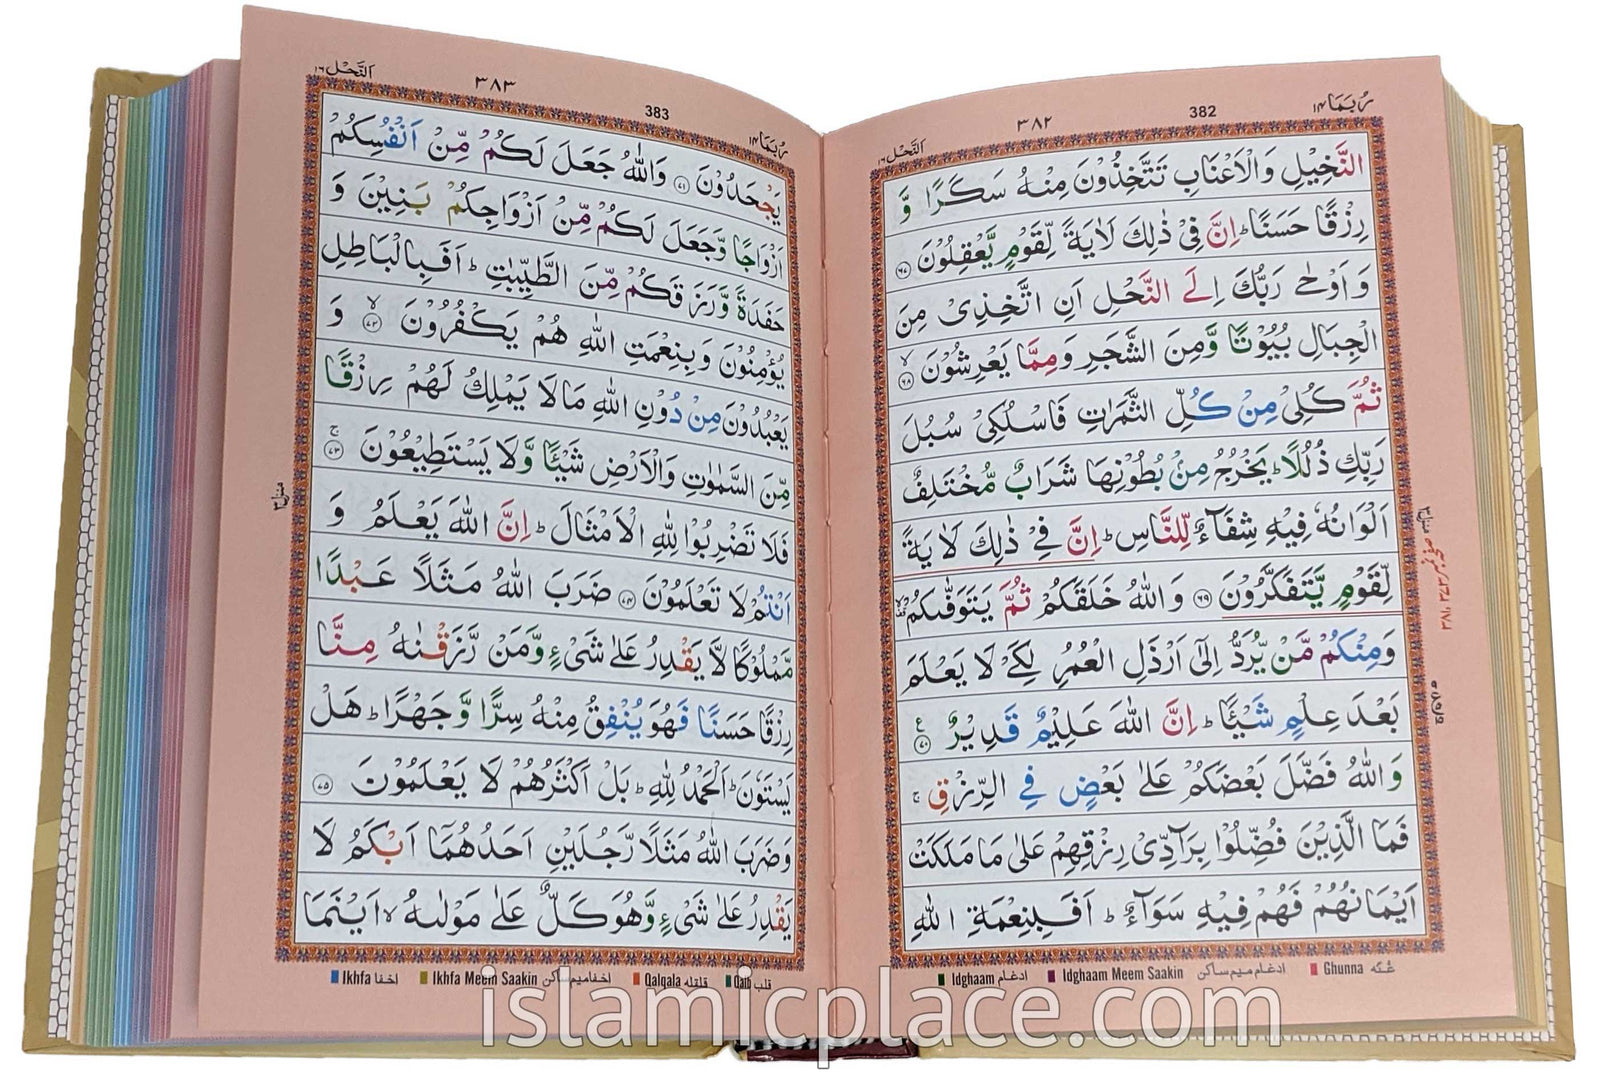 رُبَمَا ١٤
382
٣٨٢
اَلنَّحْل ١٦
النَّخِيْلِ وَالْاَعْنَابِ تَتَّخِذُوْنَ مِنْهُ سَكَرًا وَّ
رِزْقًا حَسَنًا ؕ اِنَّ فِيْ ذٰلِكَ لَاٰيَةً لِّقَوْمٍ يَّعْقِلُوْنَ ٦٧
وَ اَوْحٰى رَبُّكَ اِلَى النَّحْلِ اَنِ اتَّخِذِيْ مِنَ
الْجِبَالِ بُيُوْتًا وَّ مِنَ الشَّجَرِ وَمِمَّا يَعْرِشُوْنَ ۙ ٦٨
ثُمَّ كُلِيْ مِنْ كُلِّ الثَّمَرٰتِ فَاسْلُكِيْ سُبُلَ
رَبِّكِ ذُلُلًا ؕ يَخْرُجُ مِنْ بُطُوْنِهَا شَرَابٌ مُّخْتَلِفٌ
اَلْوَانُهٗ فِيْهِ شِفَآءٌ لِّلنَّاسِ ؕ اِنَّ فِيْ ذٰلِكَ لَاٰيَةً
لِّقَوْمٍ يَّتَفَكَّرُوْنَ ٦٩ وَاللّٰهُ خَلَقَكُمْ ثُمَّ يَتَوَفّٰىكُمْ
وَمِنْكُمْ مَّنْ يُّرَدُّ اِلٰٓى اَرْذَلِ الْعُمُرِ لِكَيْ لَا يَعْلَمَ
بَعْدَ عِلْمٍ شَيْـًٔا ؕ اِنَّ اللّٰهَ عَلِيْمٌ قَدِيْرٌ ٧٠ ع
وَاللّٰهُ فَضَّلَ بَعْضَكُمْ عَلٰى بَعْضٍ فِي الرِّزْقِ ۚ
فَمَا الَّذِيْنَ فُضِّلُوْا بِرَآدِّيْ رِزْقِهِمْ عَلٰى مَا مَلَكَتْ
اَيْمَانُهُمْ فَهُمْ فِيْهِ سَوَآءٌ ؕ اَفَبِنِعْمَةِ اللّٰهِ
Idghaam ادغام Idghaam Meem Saakin ادغام ميم ساكن Ghunna غُنّه
رُبَمَا ١٤
383
٣٨٣
اَلنَّحْل ١٦
يَجْحَدُوْنَ ٧١ وَاللّٰهُ جَعَلَ لَكُمْ مِّنْ اَنْفُسِكُمْ
اَزْوَاجًا وَّجَعَلَ لَكُمْ مِّنْ اَزْوَاجِكُمْ بَنِيْنَ وَ
حَفَدَةً وَّرَزَقَكُمْ مِّنَ الطَّيِّبٰتِ ؕ اَفَبِالْبَاطِلِ
يُؤْمِنُوْنَ وَبِنِعْمَتِ اللّٰهِ هُمْ يَكْفُرُوْنَ ۙ ٧٢ وَ
يَعْبُدُوْنَ مِنْ دُوْنِ اللّٰهِ مَا لَا يَمْلِكُ لَهُمْ رِزْقًا
مِّنَ السَّمٰوٰتِ وَالْاَرْضِ شَيْـًٔا وَّلَا يَسْتَطِيْعُوْنَ ۚ ٧٣
فَلَا تَضْرِبُوْا لِلّٰهِ الْاَمْثَالَ ؕ اِنَّ اللّٰهَ يَعْلَمُ وَ
اَنْتُمْ لَا تَعْلَمُوْنَ ٧٤ ضَرَبَ اللّٰهُ مَثَلًا عَبْدًا
مَّمْلُوْكًا لَّا يَقْدِرُ عَلٰى شَيْءٍ وَّمَنْ رَّزَقْنٰهُ مِنَّا
رِزْقًا حَسَنًا فَهُوَ يُنْفِقُ مِنْهُ سِرًّا وَّ جَهْرًا ؕ هَلْ
يَسْتَوٗنَ ؕ اَلْحَمْدُ لِلّٰهِ ؕ بَلْ اَكْثَرُهُمْ لَا يَعْلَمُوْنَ ٧٥
وَضَرَبَ اللّٰهُ مَثَلًا رَّجُلَيْنِ اَحَدُهُمَآ اَبْكَمُ لَا
يَقْدِرُ عَلٰى شَيْءٍ وَّهُوَ كَلٌّ عَلٰى مَوْلٰىهُ ۙ اَيْنَمَا
منزل ٣
Ikhfa اخفا Ikhfa Meem Saakin اخفا ميم ساكن Qalqala قلقله Qalb قلب
islamicplace.com